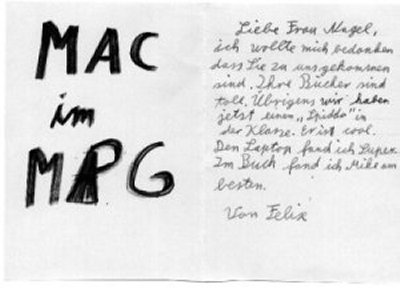 MAC
im
MPG
Liebe Frau Nagel,
ich wollte mich bedanken
dass Sie zu uns gekommen
sind. Ihre Bücher sind
toll. Übrigens wir haben
jetzt einen „Spidda" in
der Klasse. Er ist cool.
Den Laptop fand ich super.
Im Buch fand ich Mike am
besten.
Von Felix